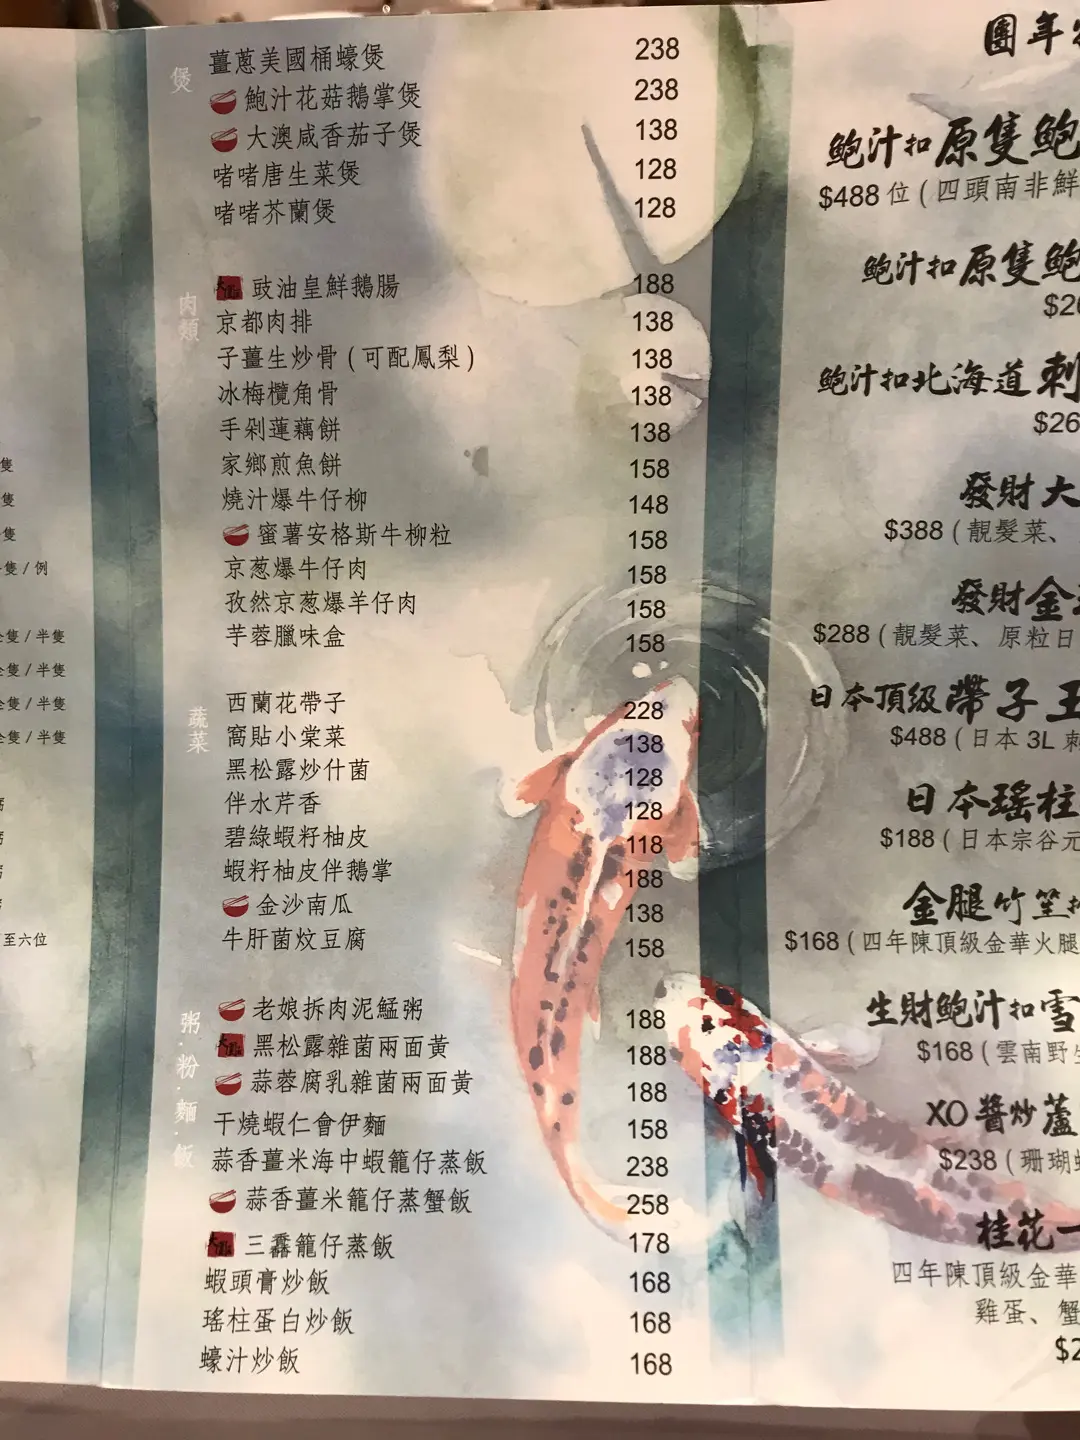 隻
隻
隻
隻 / 例
隻 / 半隻
隻 / 半隻
隻 / 半隻
隻 / 半隻
至六位
煲
薑蔥美國桶蠔煲 238
鮑汁花菇鵝掌煲 238
大澳咸香茄子煲 138
啫啫唐生菜煲 128
啫啫芥蘭煲 128
肉類
豉油皇鮮鵝腸 188
京都肉排 138
子薑生炒骨 ( 可配鳳梨 ) 138
冰梅欖角骨 138
手剁蓮藕餅 138
家鄉煎魚餅 158
燒汁爆牛仔柳 148
蜜薯安格斯牛柳粒 158
京葱爆牛仔肉 158
孜然京葱爆羊仔肉 158
芋蓉臘味盒 158
蔬菜
西蘭花帶子 228
窩貼小棠菜 138
黑松露炒什菌 128
伴水芹香 128
碧綠蝦籽柚皮 118
蝦籽柚皮伴鵝掌 188
金沙南瓜 138
牛肝菌炆豆腐 158
粥．粉．麵．飯
老娘拆肉泥鯭粥 188
黑松露雜菌兩面黃 188
蒜蓉腐乳雜菌兩面黃 188
干燒蝦仁會伊麵 158
蒜香薑米海中蝦籠仔蒸飯 238
蒜香薑米籠仔蒸蟹飯 258
三靐籠仔蒸飯 178
蝦頭膏炒飯 168
瑤柱蛋白炒飯 168
蠔汁炒飯 168
團年
鮑汁扣原隻鮑
$488 位 ( 四頭南非鮮
鮑汁扣原隻鮑
鮑汁扣北海道刺
發財大
$388 ( 靚髮菜、
發財金
$288 ( 靚髮菜、原粒日
日本頂級帶子王
$488 ( 日本 3L 刺
日本瑤柱
$188 ( 日本宗谷元
金腿竹笙
$168 ( 四年陳頂級金華火腿
生財鮑汁扣雪
$168 ( 雲南野生
XO 醬炒蘆
$238 ( 珊瑚蚌
桂花一
四年陳頂級金華
雞蛋、蟹